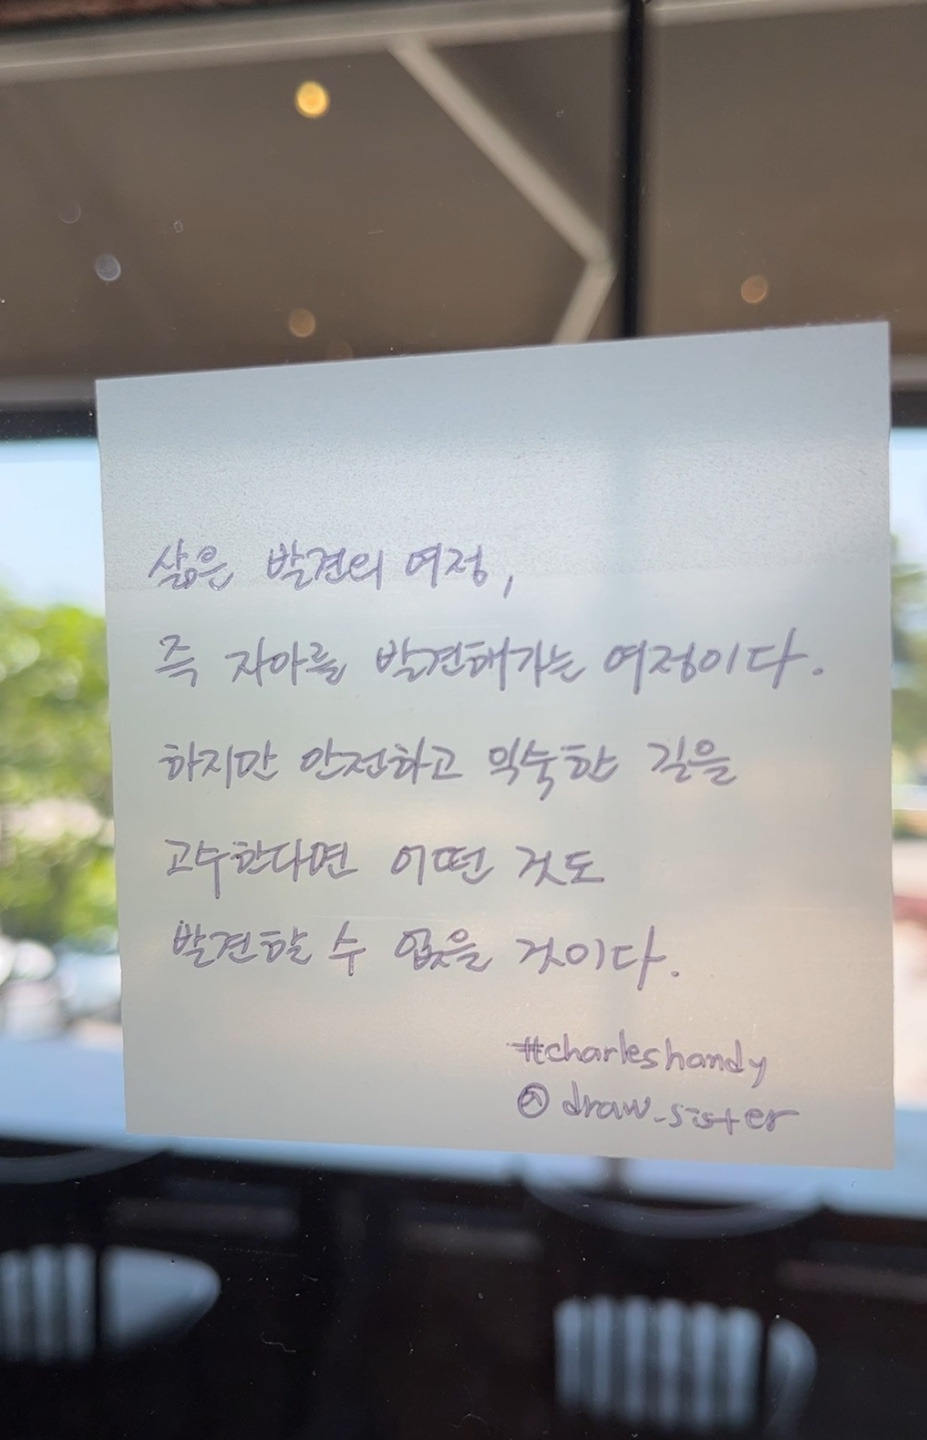 삶은 발견의 여정,
즉 자아를 발견해가는 여정이다.
하지만 안전하고 익숙한 길을
고수한다면 어떤 것도
발견할 수 없을 것이다.
#charleshandy
@draw_sister